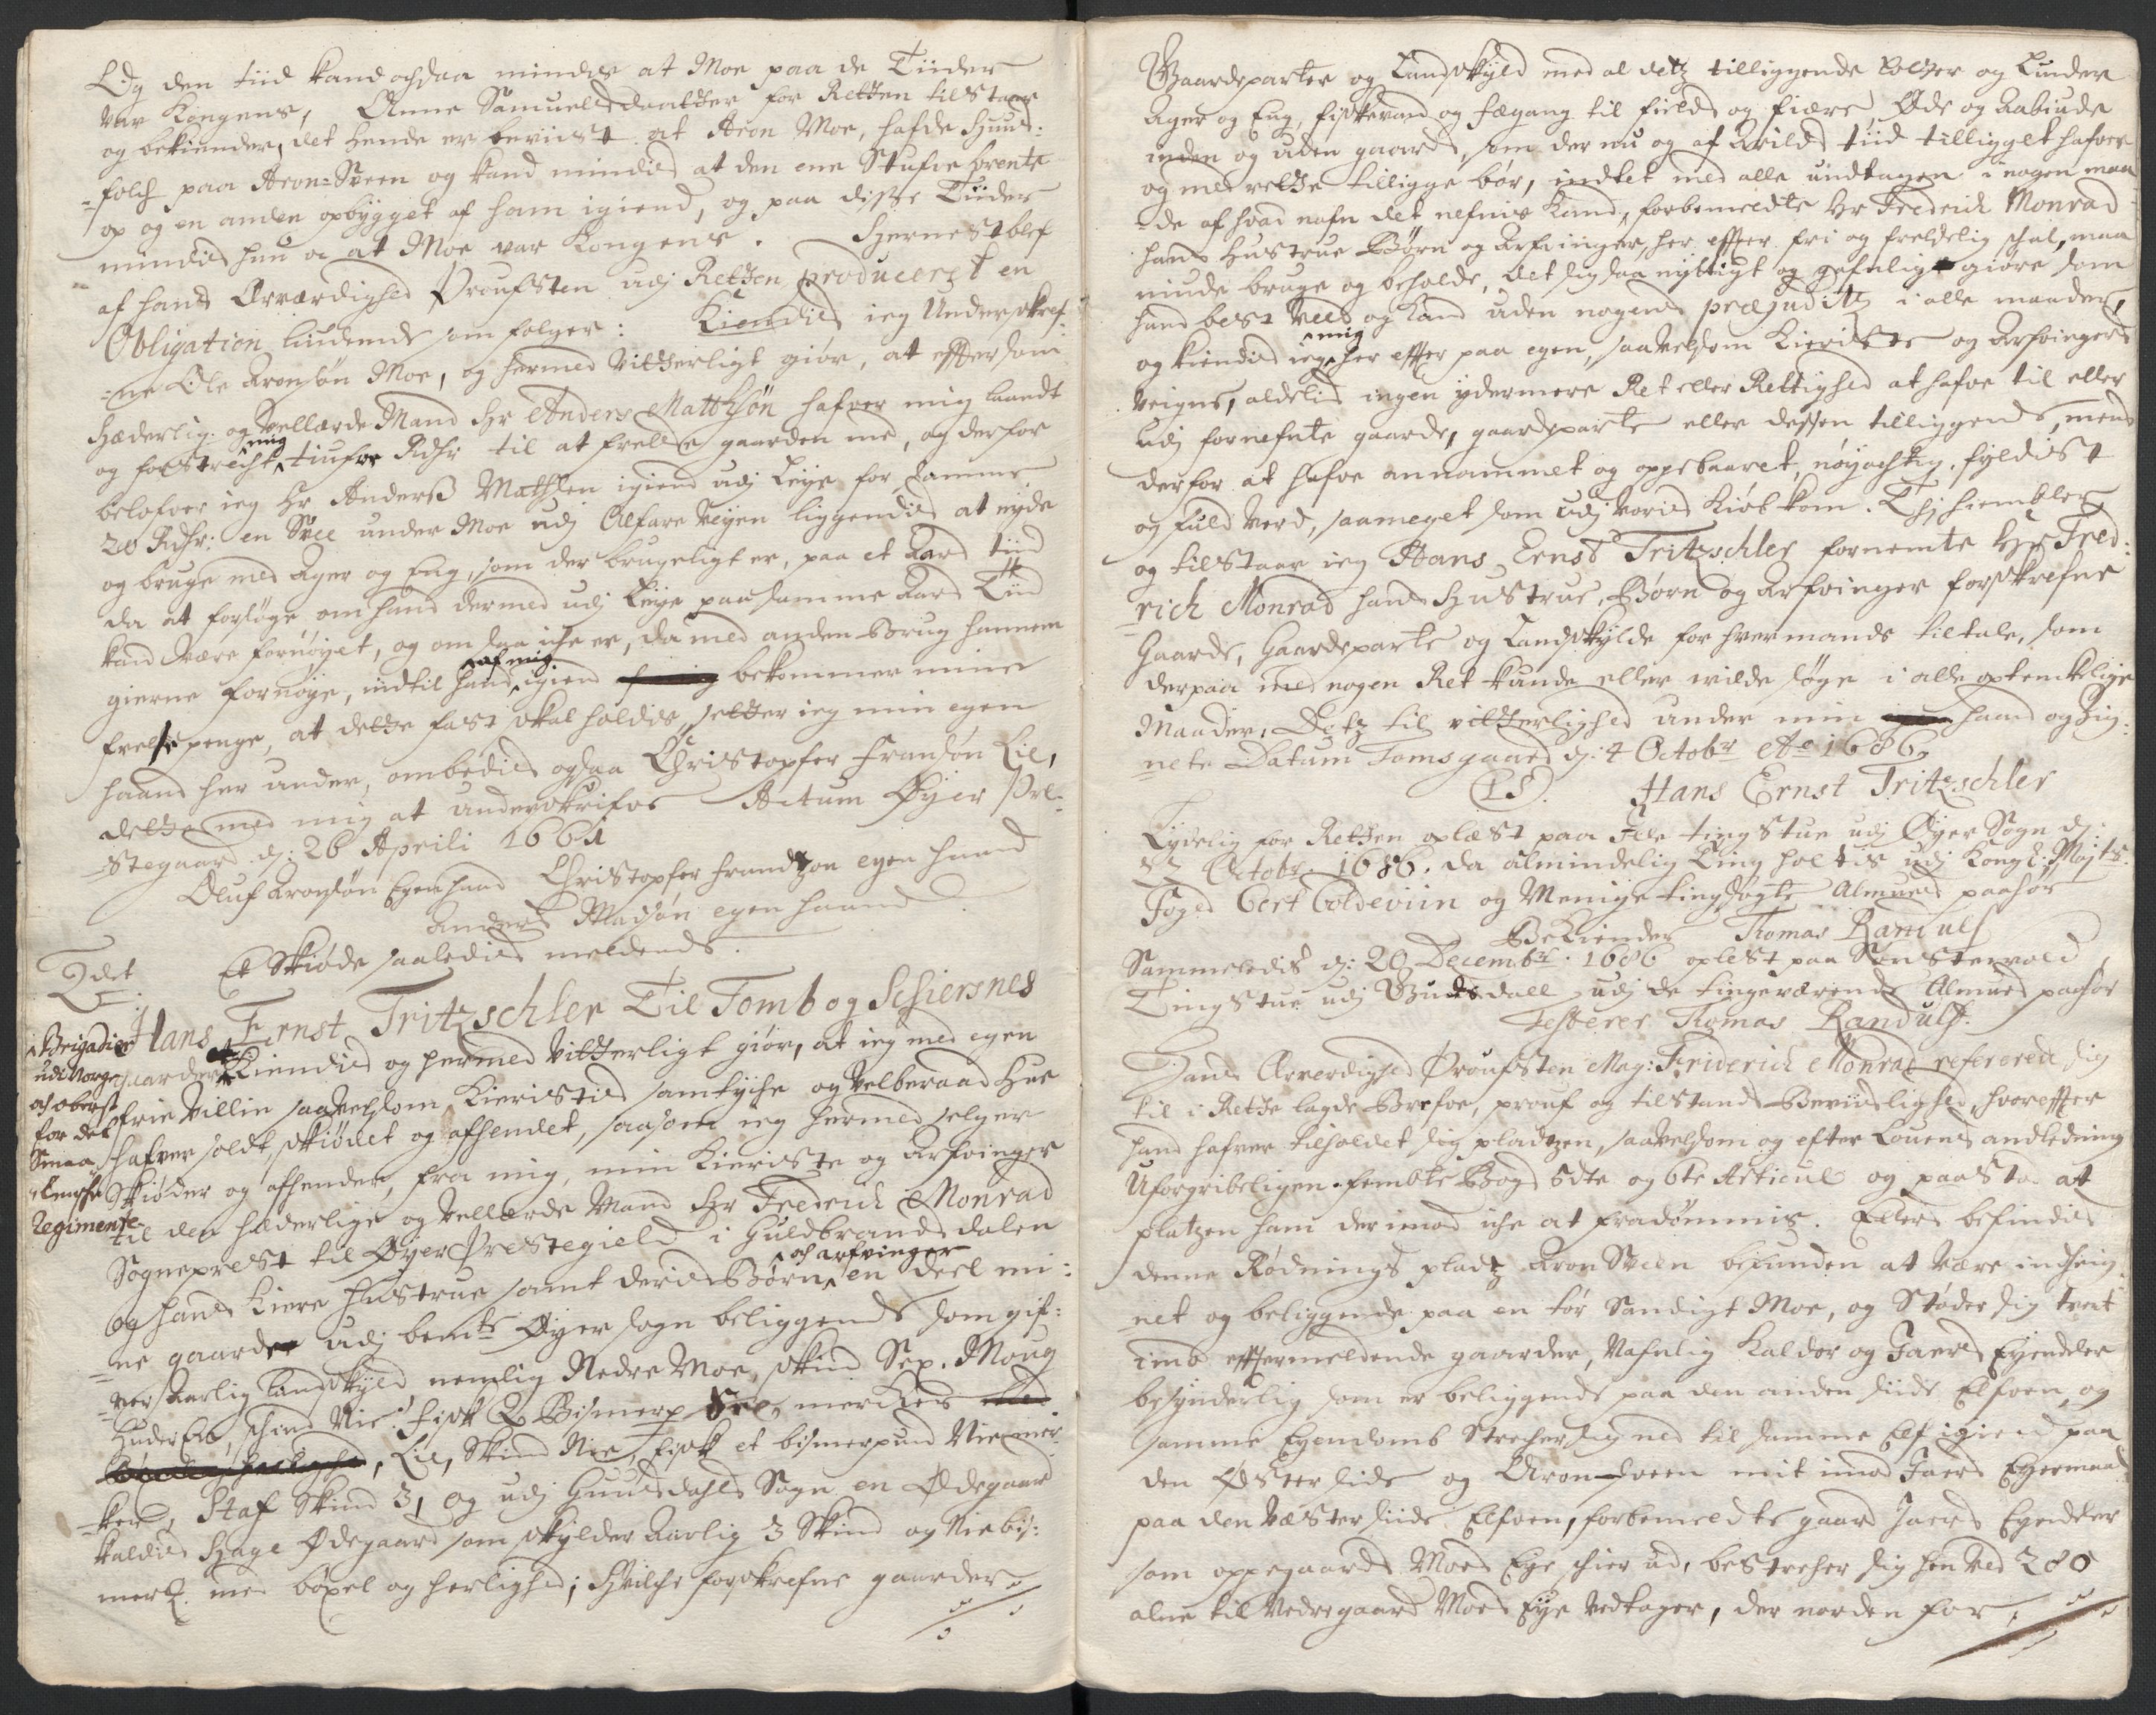 Og den tiid kand ochsaa mindis at Moe paa de Tiider
var Kongens, Anne Samuelsdaatter for Retten tilstaar
og bekiender, det hende er beviist at Aron Moe, hafde Huus-
-folch paa Aron-Sveen og kand mindis at den ene Stufve brente
op og en anden opbygget af ham igiend, og paa disse Tiider
mindis hun oc at Moe var Kongens. Hernest blef
af hans Ærværdighed Proufsten udj Retten produceret en
Obligation liudends som folger: Kiendis ieg Underskref-
-ne Ole Aronsøn Moe, og hermed vitterligt giør, at effter som
Hæderlig og Vellærde Mand Hr Anders Matthsøn hafver mig laandt
og forstrecht mig tiufve Rdhr til at frelse gaarden med, og derfor
belofver ieg Hr Anderss Mathsen igiend udj Leye for samme
20 Rdhr: en Svee under Moe udj Alfare Veyen liggendis at nyde
og bruge med Ager og Eng, som der brugeligt er, paa et Aars tiid
da at forsøge om hand dermed udj Leye paa samme Aars Tiid
kand være fornøyet, og om saa iche er, da med anden Brug hannem
gierne fornøye, indtil hand af mig igien bekommer mine
frelse penge, at dette fast skal holdis, setter ieg min egen
haand her under, ombedis ogsaa Christopfer Fransøn Lie,
dette med mig at underskrifve Actum Øyer Pre-
-stegaard dj: 26 Aprili 1661
Oluf Aronsøn Egen haand Christopfer Frandtzon egen haand
Anders Madsøn egen haand
2det Et Skiøde saaledis meldends.
Hans Ernst Tritzschler Til Tomb og Schiersnes
Brigadier
udi Norge
och oberst
for det
Smaa
lensche
Regimente
Kiendis og hermed Vitterligt giør, at ieg med egen
frie Villie saavelsom Kieristis samtyche og Velberaad Hue
hafver soldt, skiødet og afhendet, saasom ieg hermed selger
Skiøder og afhender, fra mig, min Kieriste og Arfvinger
til den Hæderlige og Vellærde Mand Hr Frederich Monrad
Sogneprest til Øyer Prestegield i Guldbrandsdalen
og hans Kiere Hustrue samt deris Børn och arfvinger en deel mi-
ne gaarder udj bemte Øyer sogn beliggends som gif-
ver Aarlig Landskyld nemlig Nedre Moe, skind Sex. Moug
Huder En, skind Nie: Fisk 2 Bismerp. merker
Lie, Skind Nie, Fisk et bismerpund Nie mer-
-ker, Staf Skind 3, og udj Guusdahls Sogn en Ødegaard
kaldis Hage Ødegaard som skylder Aarlig 3 Skind og Nie bis-
merk. med boxel og herlighed; Hvilche forskrefne gaarder
Gaardeparter og Landskyld med al detz tilliggende Lodder og Lunder
Ager og Eng, fiskevand og fægang til fields og fiære, Øde og Aabiude
inden og uden gaards, som der nu og af Arilds tiid tilligget hafver
og med rette tilligge bør, indtet med alle undtagen i nogen maa-
de af hvad nafn det nefnis kand, forbemeldte Hr Fredrich Monrad
hans Hustrue Børn og Arfvinger, her effter fri og frelselig schal, maa
niude bruge og beholde, det sig saa nyttigt og gafnligt giøre som
hand best veed og kand uden nogens præjuditz i alle maader,
og kiendis ieg mig her effter paa egen, saavelsom Kieristes og Arfvingers
Veigne, aldelis ingen ydermere Ret eller Rettighed at hafve til eller
udj fornefnte gaarde, gaardeparte eller dessen tilliggends, mens
derfor at hafve annammet og oppebaaret, nøyachtig, fyldist
og fuld Verd, saameget som udj voris Kiøb kom. Thj hiembler
og tilstaar ieg Hans Ernst Tritzschler fornemte Hr Fred-
rich Monrad hans Hustrue, Børn og Arfvinger forskrefne
Gaarde, Gaardeparte og Landskylde for hver mands tiltale, som
derpaa med nogen Ret kunde eller wilde søge i alle optenchlige
Maader. Detz til vitterlighed under min haand og Sig-
nete Datum Tomsgaard dj: 4 Octobr Ao 1686
(LS). Hans Ernst Tritzschler
Lydelig for Retten oplæst paa Ille tingstue udj Øyer Sogn dj:
Octobr. 1686. da almindelig Ting holtis udj Kongl: Mayts:
Foged Gert Coldeviin og Menige tingsøgte Almues paahør
Bekiender Thomas Randulf
Sammeledis dj: 20 Decembr: 1686 oplest paa Sønstevold
Tingstue udj Gudsdall udj de tingværende Almues paahør
Testerer Thomas Randulf.
Hans Ærverdighed Proufsten Mag: Friderich Monrad refererede sig
til i Rette lagde Brefve, prouf og tilstands Beviislighed, hvoreffter
hand hafver tilholdet sig pladtzen, saavelsom og efter Louens andledning
Uforgribeligen fembte Bogs 5dte og 6te Articul og paastod at
platzen ham derimod iche at fradømmis. Ellers befindis
denne Rødnings pladtz Aron Sveen befunden at være indheig-
net og beliggende paa en tør Sandigt Moe, og Støder sig tvert
imod effermeldende gaarder, Nafnlig Kaldor og Jaers Eyendeler
besynderlig som er beliggends paa den anden siide Elfven, og
samme Eyendomb Strecher sig ned til samme Elf igien paa
den Øster side og Aron-sveen mit imod Jaers Eyermaal
paa den Væster siide Elfven, forbemeldte gaard Jaers Eyendeler
som oppegaards Moes Eye schier ud, bestrecher sig hen ved 280
alne til Nedregaard Moes Eye vedtager, der norden for,